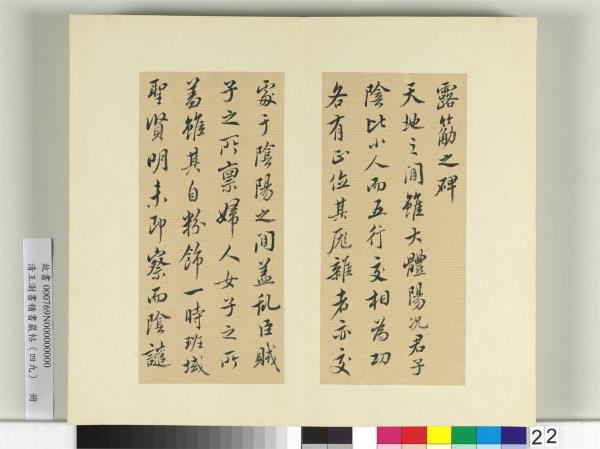 露筋之碑
天地之間雖大體陽況君子
陰比小人而五行交相為功
各有正位其厖雜者亦交
處于陰陽之間蓋亂臣賊
子之所稟婦人女子之所
羞雖其自粉飾一時班域
聖賢明未即察而陰譴
故書 000769N000000000
清王澍書積書巖帖(四九) 冊
22